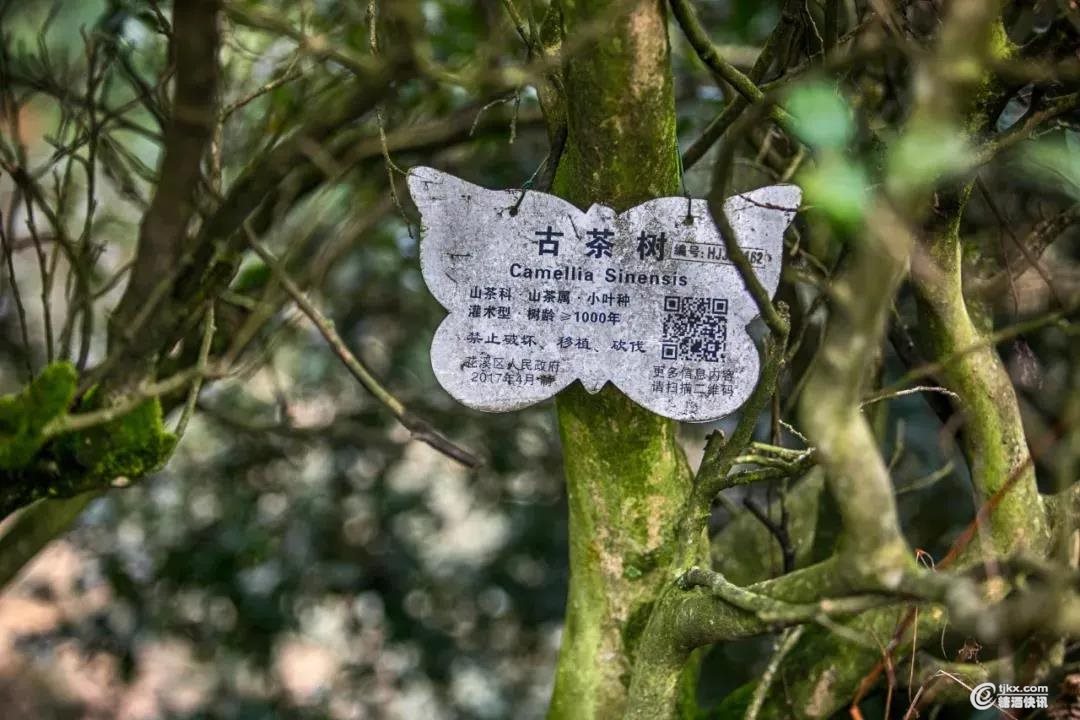 古茶树
编号:
Camellia Sinensis
山茶科 山茶属·小叶种
灌术型·树龄≥1000年
禁止破坏、移植、砍伐
花溪区人民政府
2017年4月
更多信息内容
请扫描二维码
tjkx.com
糖酒快讯